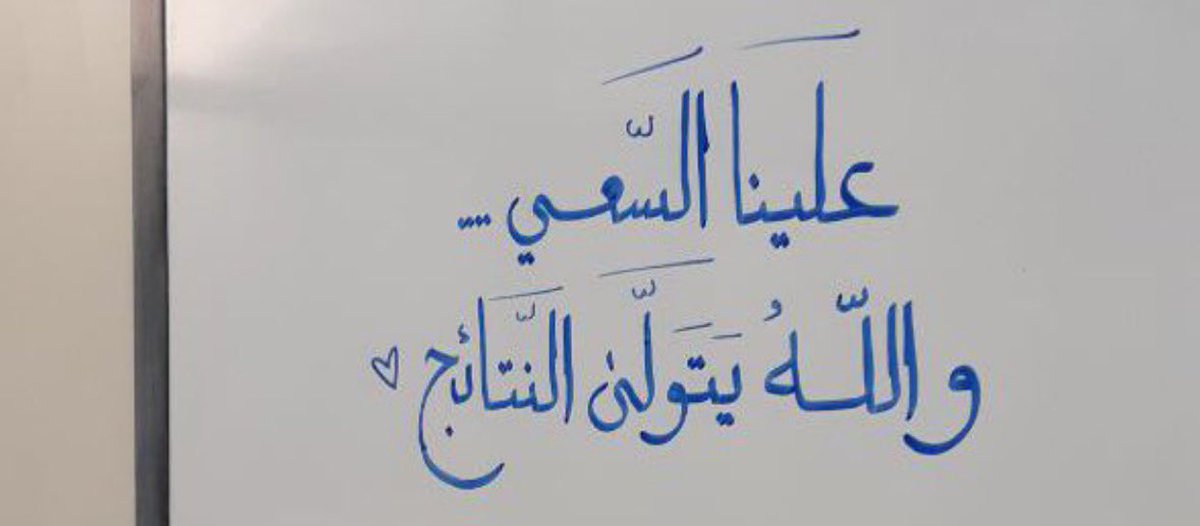 علينَا السَّعي ....
واللّهُ يَتَولَّى النَّتائج ♡